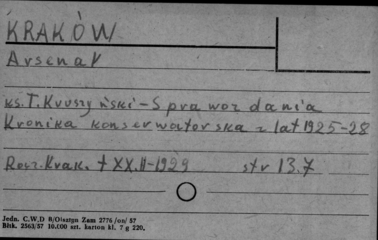 KRAKÓW
Arsenał
ks. T. Kruszyński - Sprawozdania
Kronika konserwatorska z lat 1925-28
Rocz. Krak. t XX.II-1929 str 13.7
Jedn. C.W.D 8/Olsztyn Zam 2776/on/57
Błtk. 2563/57 10.000 szt. karton kl. 7 g 220.